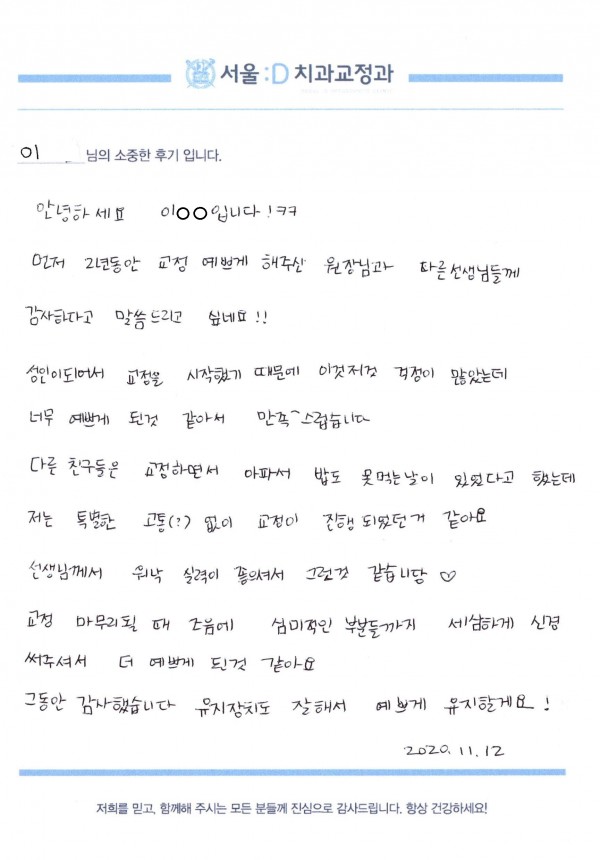 서울:D 치과교정과
이 님의 소중한 후기 입니다.
안녕하세요 이○○입니다!ㅋㅋ
먼저 2년동안 교정 예쁘게 해주신 원장님과 다른선생님들께
감사하다고 말씀드리고 싶네요!!
성인이되어서 교정을 시작했기 때문에 이것저것 걱정이 많았는데
너무 예쁘게 된것 같아서 만족스럽습니다
다른 친구들은 교정하면서 아파서 밥도 못먹는날이 있었다고 했는데
저는 특별한 고통(?) 없이 교정이 진행 되었던거 같아요
선생님께서 워낙 실력이 좋으셔서 그런것 같습니당 ♡
교정 마무리될 때 즈음에 심미적인 부분들까지 세심하게 신경
써주셔서 더 예쁘게 된것 같아요
그동안 감사했습니다 유지장치도 잘해서 예쁘게 유지할게요!
2020.11.12
저희를 믿고, 함께해 주시는 모든 분들께 진심으로 감사드립니다. 항상 건강하세요!